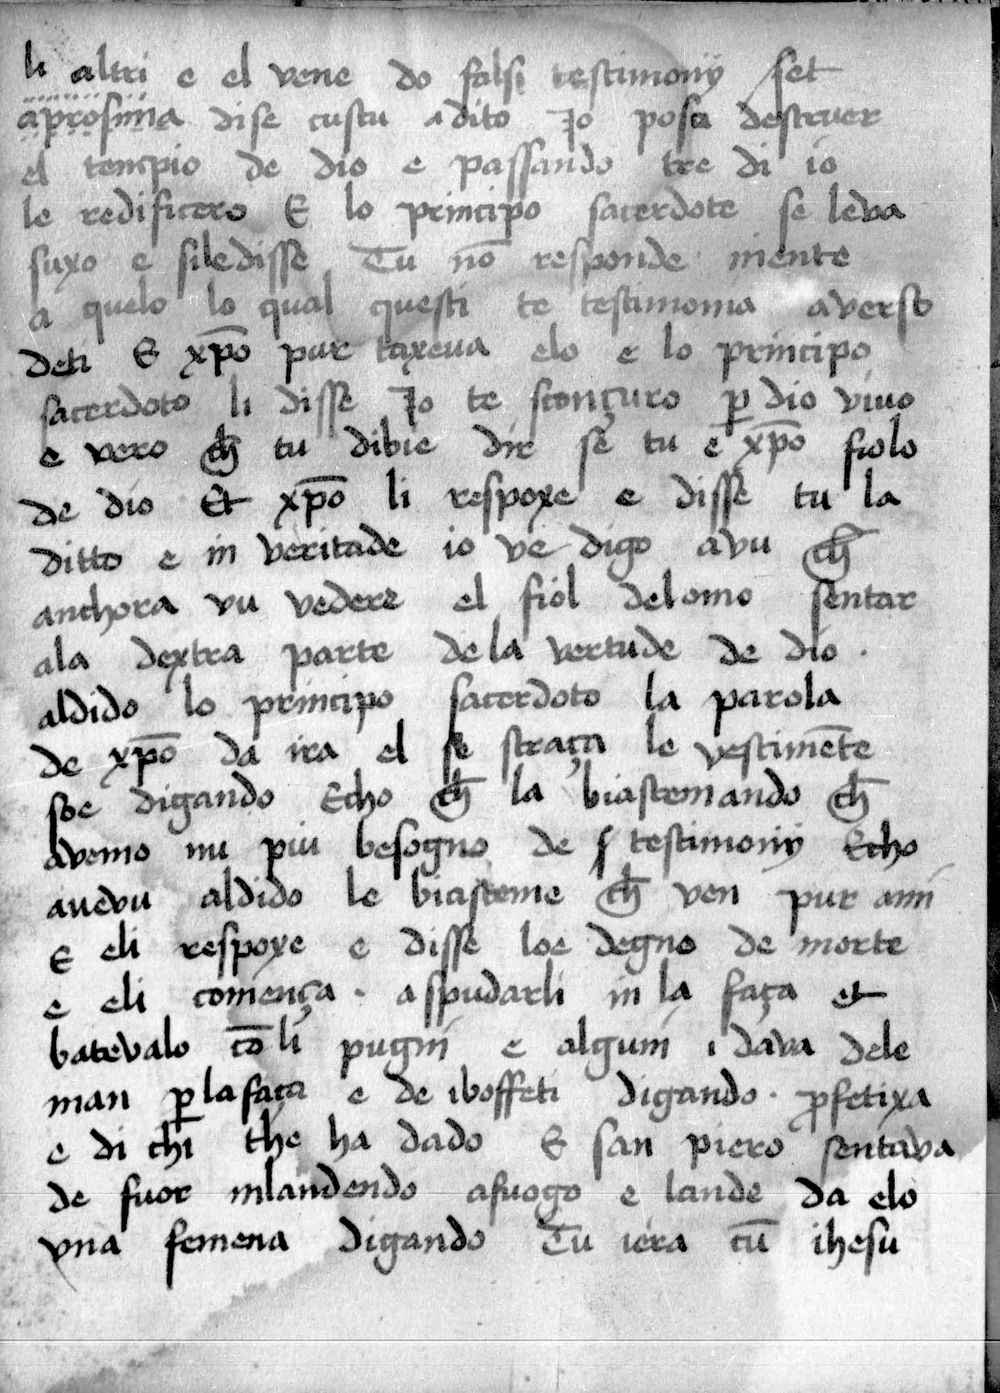 li altri e el vene do falsi testimonij set
aprosima dise custu a dito Io posu destruer
el tempio de dio e passando tre di io
le redificero E lo principo sacerdote se leva
suxo e siledisse Tu nō responde niente
a quelo lo qual questi te testimonia averso
deti E xp̄o pur taxeua elo e lo principo
sacerdoto li disse Io te sconçuro p̱ dio vivo
e vero ch̄ tu dibie dir se tu e xp̄o fiolo
de dio Et xp̄o li respoxe e disse tu la
ditto e in veritade io ve digo avu ch̄
anchora vu vedere el fiol delomo sentar
ala dextra parte dela vertude de dio ·
aldido lo principo sacerdoto la parola
de xp̄o da ira el se straça le vestimēte
soe digando Echo ch̄ la biastemando ch̄
avemo nu piu besogno de testimonij Echo
auevu aldido le biasteme ch̄ ven pur anii
E eli respoxe e disse loe degno de morte
e eli començа · a spudarli in la faça et
batevalo cō li pugni e alguni i dava dele
man p̱ la faça e de iboffeti digando · ꝓfetixa
e di chi the ha dado E san piero sentava
de fuor inlandendo a fuogo e lande da elo
vna femena digando Tu iera cū ihesu